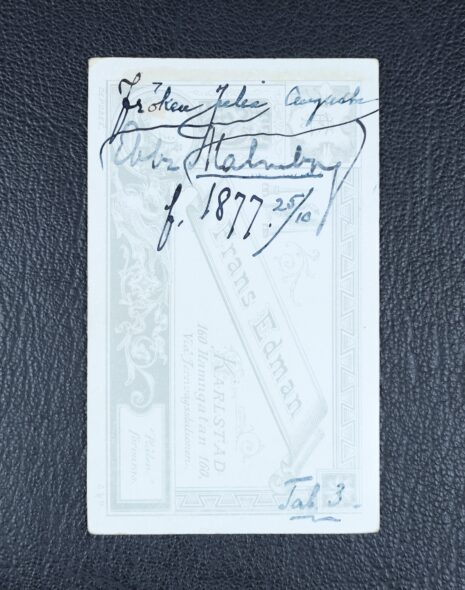 Fröken Julia Augusta
Ebba Malmberg
f. 1877. 25/10
Frans Edman
KARLSTAD
160 Hamngatan 160.
Tab 3.